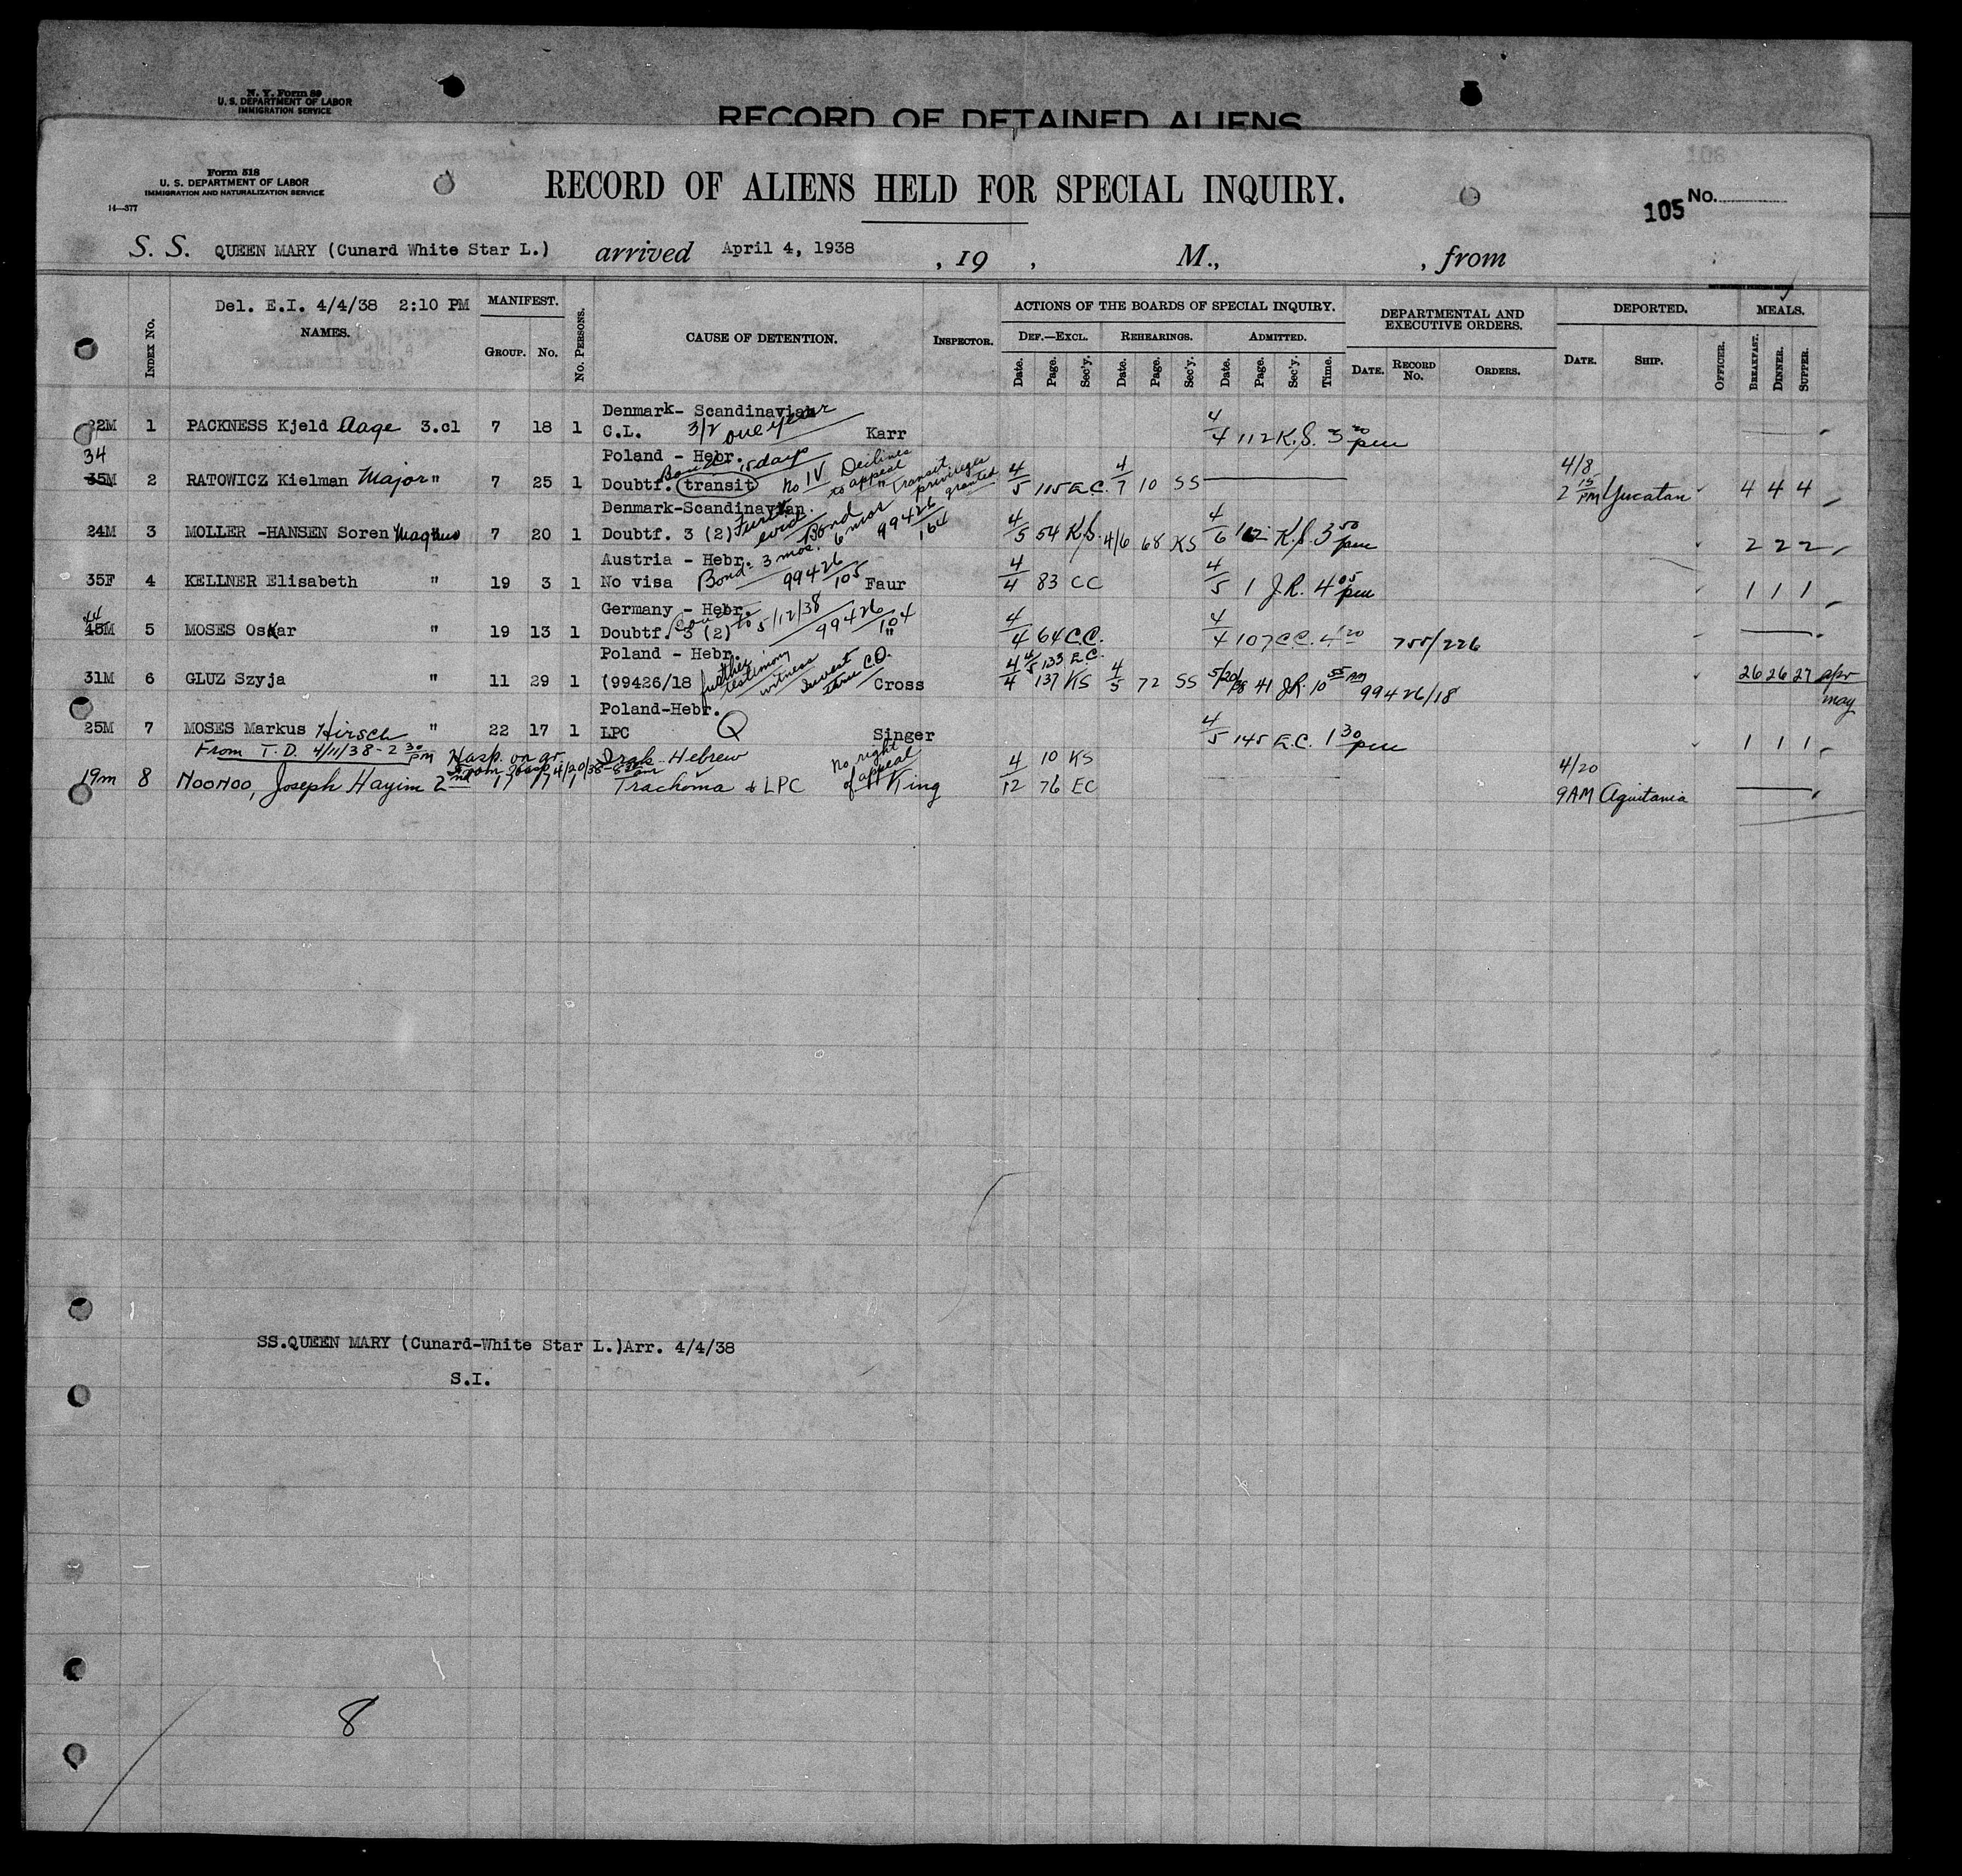 N. Y. Form 89
U. S. DEPARTMENT OF LABOR
IMMIGRATION SERVICE
RECORD OF DETAINED ALIENS
Form 518
U. S. DEPARTMENT OF LABOR
IMMIGRATION AND NATURALIZATION SERVICE
14—377
RECORD OF ALIENS HELD FOR SPECIAL INQUIRY.
105 No.
S. S. QUEEN MARY (Cunard White Star L.) arrived April 4, 1938 , 19 , M., , from
Del. E.I. 4/4/38 2:10 PM
INDEX No. NAMES. MANIFEST. GROUP. No. No. PERSONS. CAUSE OF DETENTION. INSPECTOR. ACTIONS OF THE BOARDS OF SPECIAL INQUIRY. DEPARTMENTAL AND EXECUTIVE ORDERS. DEPORTED. MEALS.
DEF.—EXCL. REHEARINGS. ADMITTED.
Date. Page. Sec'y. Date. Page. Sec'y. Date. Page. Sec'y. Time. DATE. RECORD No. ORDERS. DATE. SHIP. OFFICER. BREAKFAST. DINNER. SUPPER.
Denmark- Scandinavian
22M 1 PACKNESS Kjeld Aage 3.cl 7 18 1 C.L. 3/2 one year Karr 4/4 112 K.S. 3 20 pm
34 Poland - Hebr.
35M 2 RATOWICZ Kielman Major " 7 25 1 Doubtf. (transit) Bond 15 days No IV Declines to appeal Transit privileges granted 4/5 115 E.C. 4/7 10 SS 4/8 2 15 PM Yucatan 4 4 4
Denmark-Scandinavian.
24M 3 MOLLER -HANSEN Soren Magnus " 7 20 1 Doubtf. 3 (2) Further evid. Bond 6 mos 99426/164 4/5 54 K.S. 4/6 68 KS 4/6 K.S. 3 50 pm 2 2 2
Austria - Hebr.
35F 4 KELLNER Elisabeth " 19 3 1 No visa Bond 3 mos. 99426/105 Faur 4/4 83 CC 4/5 1 J.R. 4 05 pm 1 1 1
44 Germany - Hebr.
45M 5 MOSES Oskar " 19 13 1 Doubtf. 3 (2) to 5/12/38 99426/104 " 4/4 64 C.C. 4/4 107 C.C. 4 20 755/226
Poland - Hebr. 4/5 133 E.C.
31M 6 GLUZ Szyja " 11 29 1 (99426/18 further testimony witness Cross 4/4 137 KS 4/5 72 SS 5/20/38 41 J.R. 10 55 AM 99426/18 26 26 27 apr
may
Poland-Hebr.
25M 7 MOSES Markus Hirsch " 22 17 1 LPC Q Singer 4/5 145 E.C. 1 30 pm 1 1 1
From T.D. 4/11/38 - 2 30 pm Hosp. on ar. Irak - Hebrew No right of appeal 4 10 KS 4/20
From Hosp. 4/20/38 - 8 30 am
19m 8 NOONOO, Joseph Hayim 2nd 17 17 1 Trachoma & LPC King 12 76 EC 9AM Aquitania
SS.QUEEN MARY (Cunard-White Star L.)Arr. 4/4/38
S.I.
8